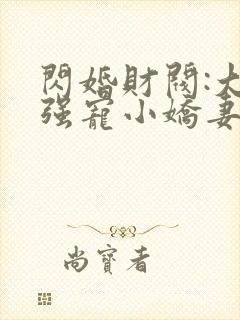 閃婚財閥:大
强寵小嬌妻
尚寶者